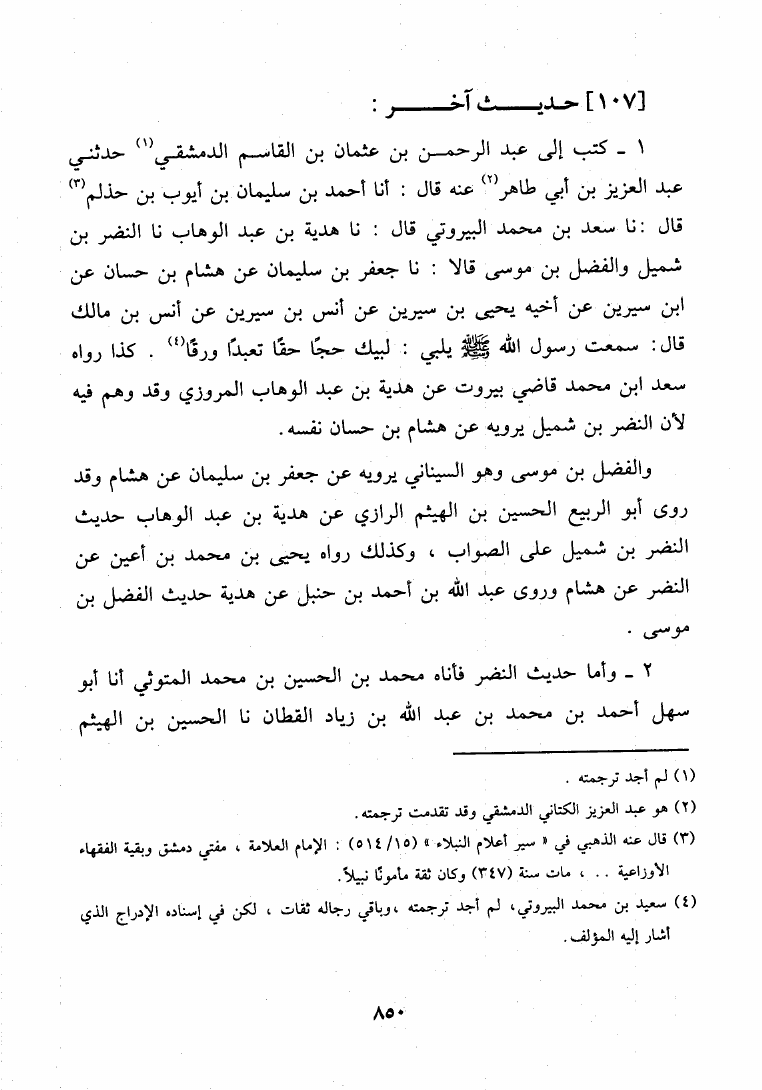 [١٠٧] حديث آخر :
١ ـ كتب إلى عبد الرحمن بن عثمان بن القاسم الدمشقي(١) حدثني
عبد العزيز بن أبي طاهر(٢) عنه قال : أنا أحمد بن سليمان بن أيوب بن حذلم(٣)
قال :نا سعد بن محمد البيروتي قال : نا هدية بن عبد الوهاب نا النضر بن
شميل والفضل بن موسى قالا : نا جعفر بن سليمان عن هشام بن حسان عن
ابن سيرين عن أخيه يحيى بن سيرين عن أنس بن سيرين عن أنس بن مالك
قال: سمعت رسول الله ﷺ يلبي : لبيك حجًا حقًا تعبدًا ورقًا(٤) . كذا رواه
سعد ابن محمد قاضي بيروت عن هدية بن عبد الوهاب المروزي وقد وهم فيه
لأن النضر بن شميل يرويه عن هشام بن حسان نفسه.
والفضل بن موسى وهو السيناني يرويه عن جعفر بن سليمان عن هشام وقد
روى أبو الربيع الحسين بن الهيثم الرازي عن هدية بن عبد الوهاب حديث
النضر بن شميل على الصواب ، وكذلك رواه يحيى بن محمد بن أعين عن
النضر عن هشام وروى عبد الله بن أحمد بن حنبل عن هدية حديث الفضل بن
موسى .
٢ ـ وأما حديث النضر فأناه محمد بن الحسين بن محمد المتوثي أنا أبو
سهل أحمد بن محمد بن عبد الله بن زياد القطان نا الحسين بن الهيثم
(١) لم أجد ترجمته .
(٢) هو عبد العزيز الكتاني الدمشقي وقد تقدمت ترجمته.
(٣) قال عنه الذهبي في « سير أعلام النبلاء » (١٥/ ٥١٤) : الإمام العلامة ، مفتي دمشق وبقية الفقهاء
الأوزاعية . . ، مات سنة (٣٤٧) وكان ثقة مأمونًا نبيلاً.
(٤) سعيد بن محمد البيروتي، لم أجد ترجمته ،وباقي رجاله ثقات ، لكن في إسناده الإدراج الذي
أشار إليه المؤلف.
٨٥٠